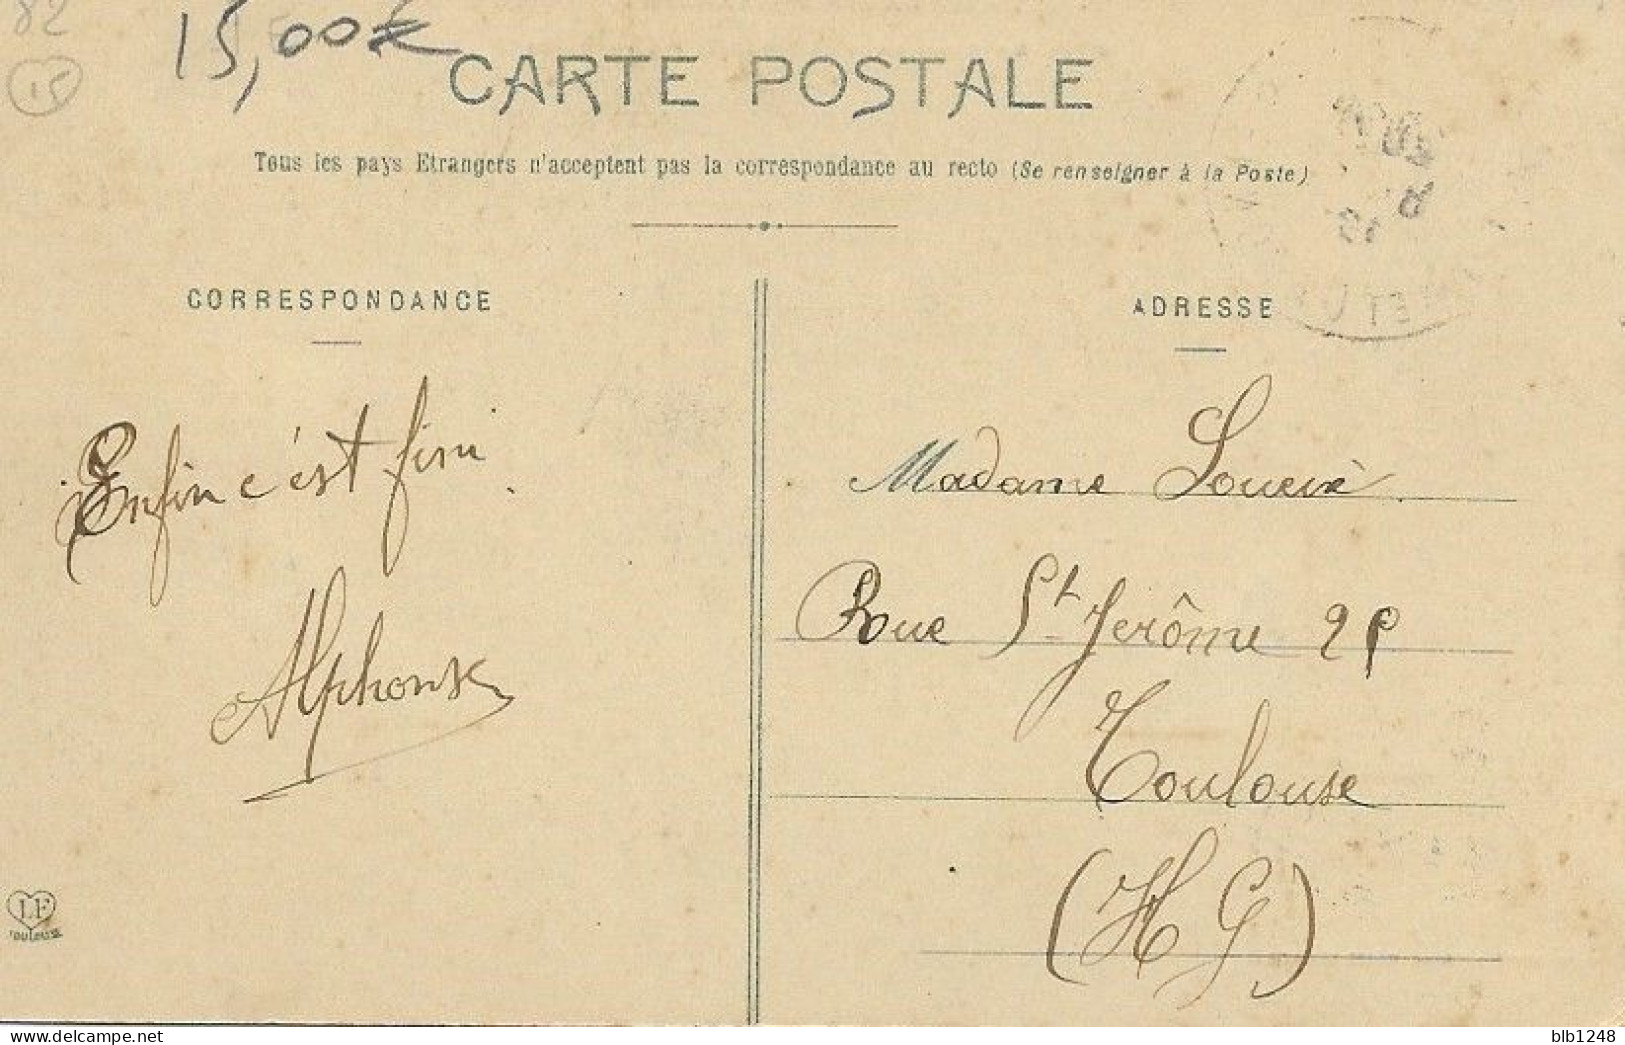 82
15
15,00€
CARTE POSTALE
Tous les pays Etrangers n'acceptent pas la correspondance au recto (Se renseigner à la Poste)
CORRESPONDANCE
ADRESSE
Enfin c'est fini.
Alphonse
Madame
Rue St Jerôme
Toulouse
(H G)
LF
TOULOUSE
blb1248